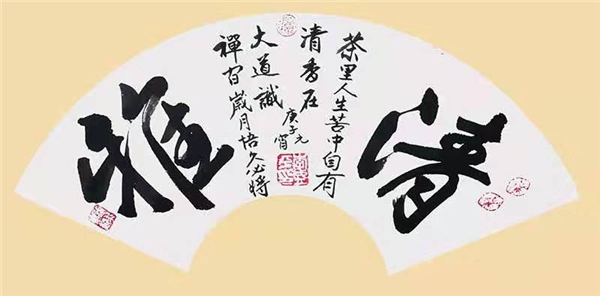 清
茶里人生苦中自有
清香在
禪歲月悟久必將
大道識
庚子元
宵
雅